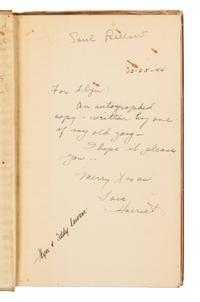 Saul Bellow
12-25-44
For Elyn:
An autographed
copy - written by one
of my old gang -
I hope it please
you -
Merry Xmas
Love
Harriet
Elyn & Eddy